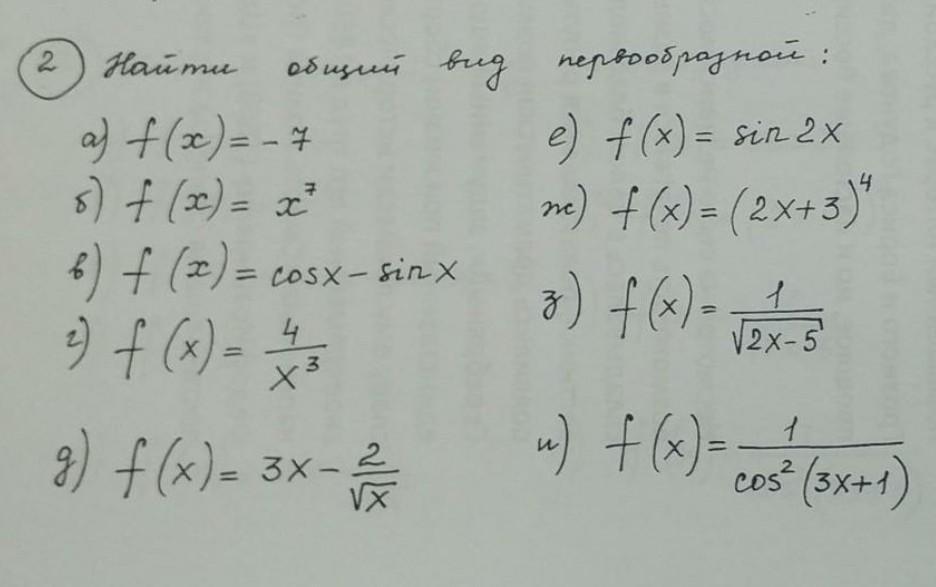 2 Найти общий вид первообразной:
а) f(x) = -7
б) f(x) = x⁷
в) f(x) = cosx - sinx
г) f(x) = 4/x³
д) f(x) = 3x - 2/√x
е) f(x) = sin2x
ж) f(x) = (2x+3)⁴
з) f(x) = 1/√(2x-5)
и) f(x) = 1/cos²(3x+1)